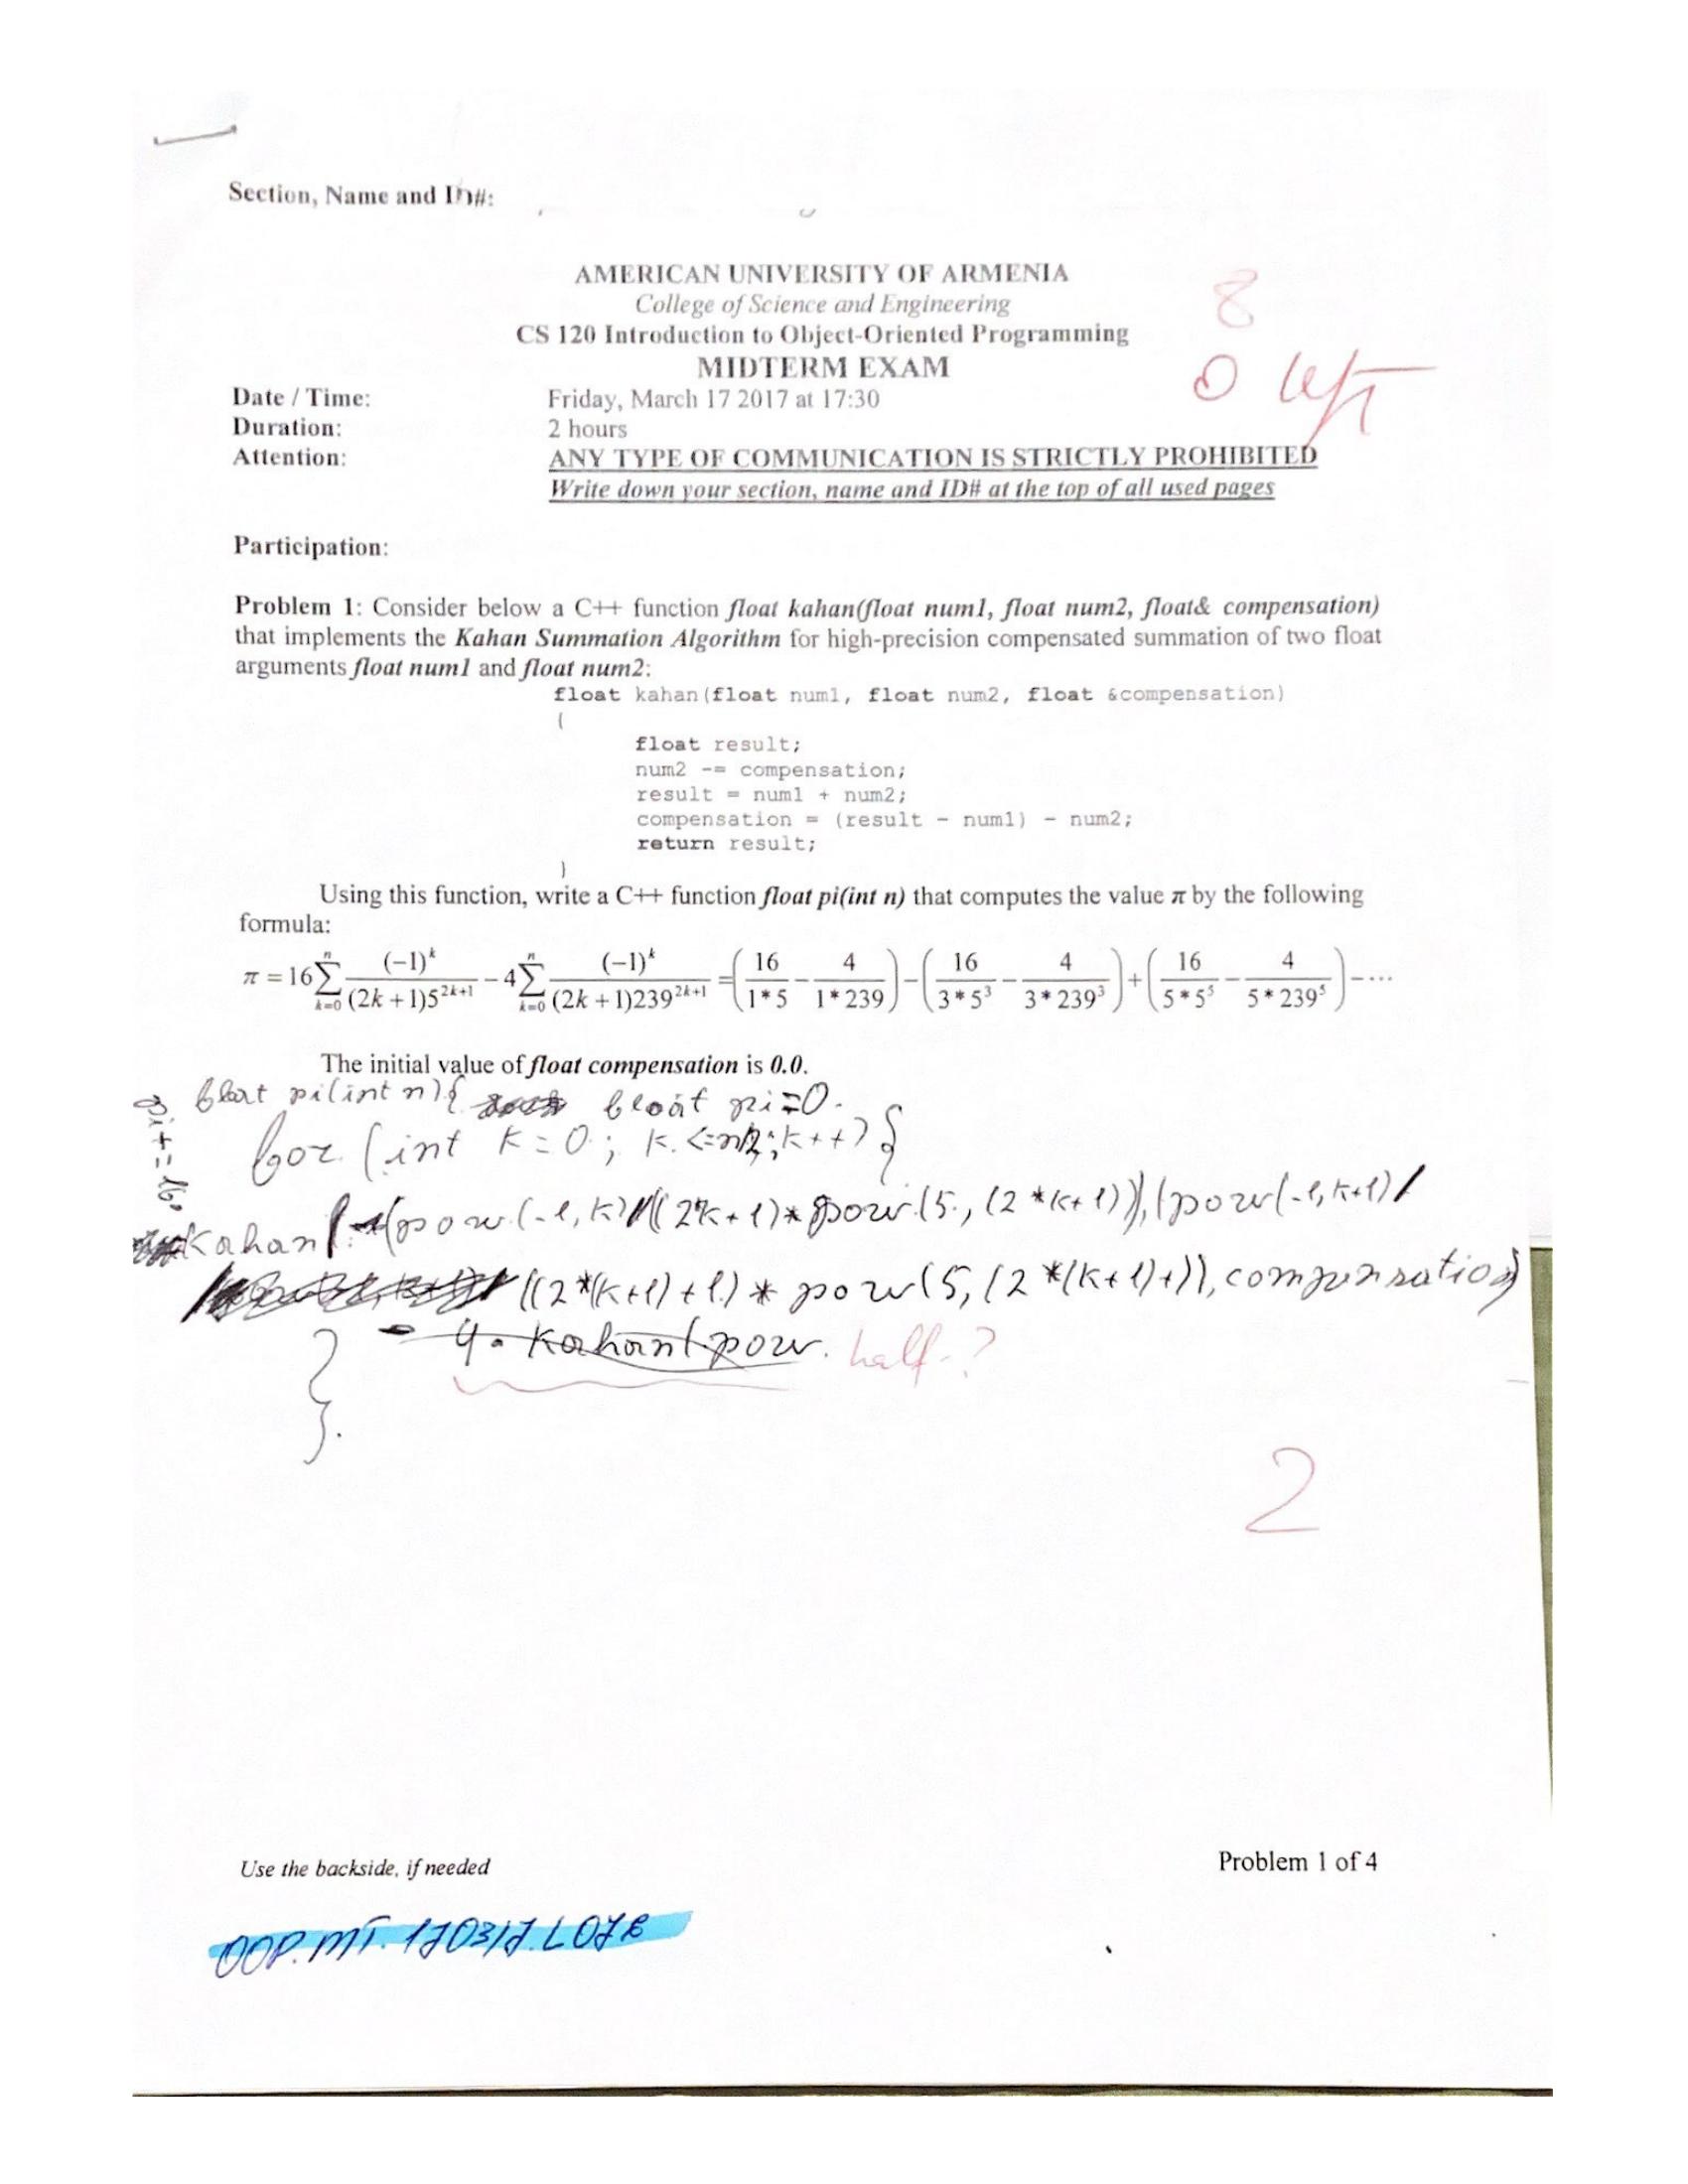 Section, Name and ID#:
AMERICAN UNIVERSITY OF ARMENIA
College of Science and Engineering
CS 120 Introduction to Object-Oriented Programming
MIDTERM EXAM
8
0 left
Date / Time: Friday, March 17 2017 at 17:30
Duration: 2 hours
Attention: ANY TYPE OF COMMUNICATION IS STRICTLY PROHIBITED
Write down your section, name and ID# at the top of all used pages
Participation:
Problem 1: Consider below a C++ function float kahan(float num1, float num2, float& compensation)
that implements the Kahan Summation Algorithm for high-precision compensated summation of two float
arguments float num1 and float num2:
float kahan(float num1, float num2, float &compensation)
{
float result;
num2 -= compensation;
result = num1 + num2;
compensation = (result - num1) - num2;
return result;
}
Using this function, write a C++ function float pi(int n) that computes the value π by the following
formula:
π = 16 ∑_{k=0}^{n} (-1)^k / ((2k+1)5^{2k+1}) - 4 ∑_{k=0}^{n} (-1)^k / ((2k+1)239^{2k+1}) = (16/(1*5) - 4/(1*239)) - (16/(3*5^3) - 4/(3*239^3)) + (16/(5*5^5) - 4/(5*239^5)) - ...
The initial value of float compensation is 0.0.
float pi(int n){ float pi=0.
for (int k=0; k<=n; k++){
pi+=16*
kahan((pow(-1,k)/((2k+1)*pow(5,(2*k+1))),(pow(-1,k+1)/
((2*(k+1)+1)*pow(5,(2*(k+1)+)), compensation)
- 4*kahan(pow. half-?
}
}.
2
Use the backside, if needed
Problem 1 of 4
OOP.MT.170317.L072